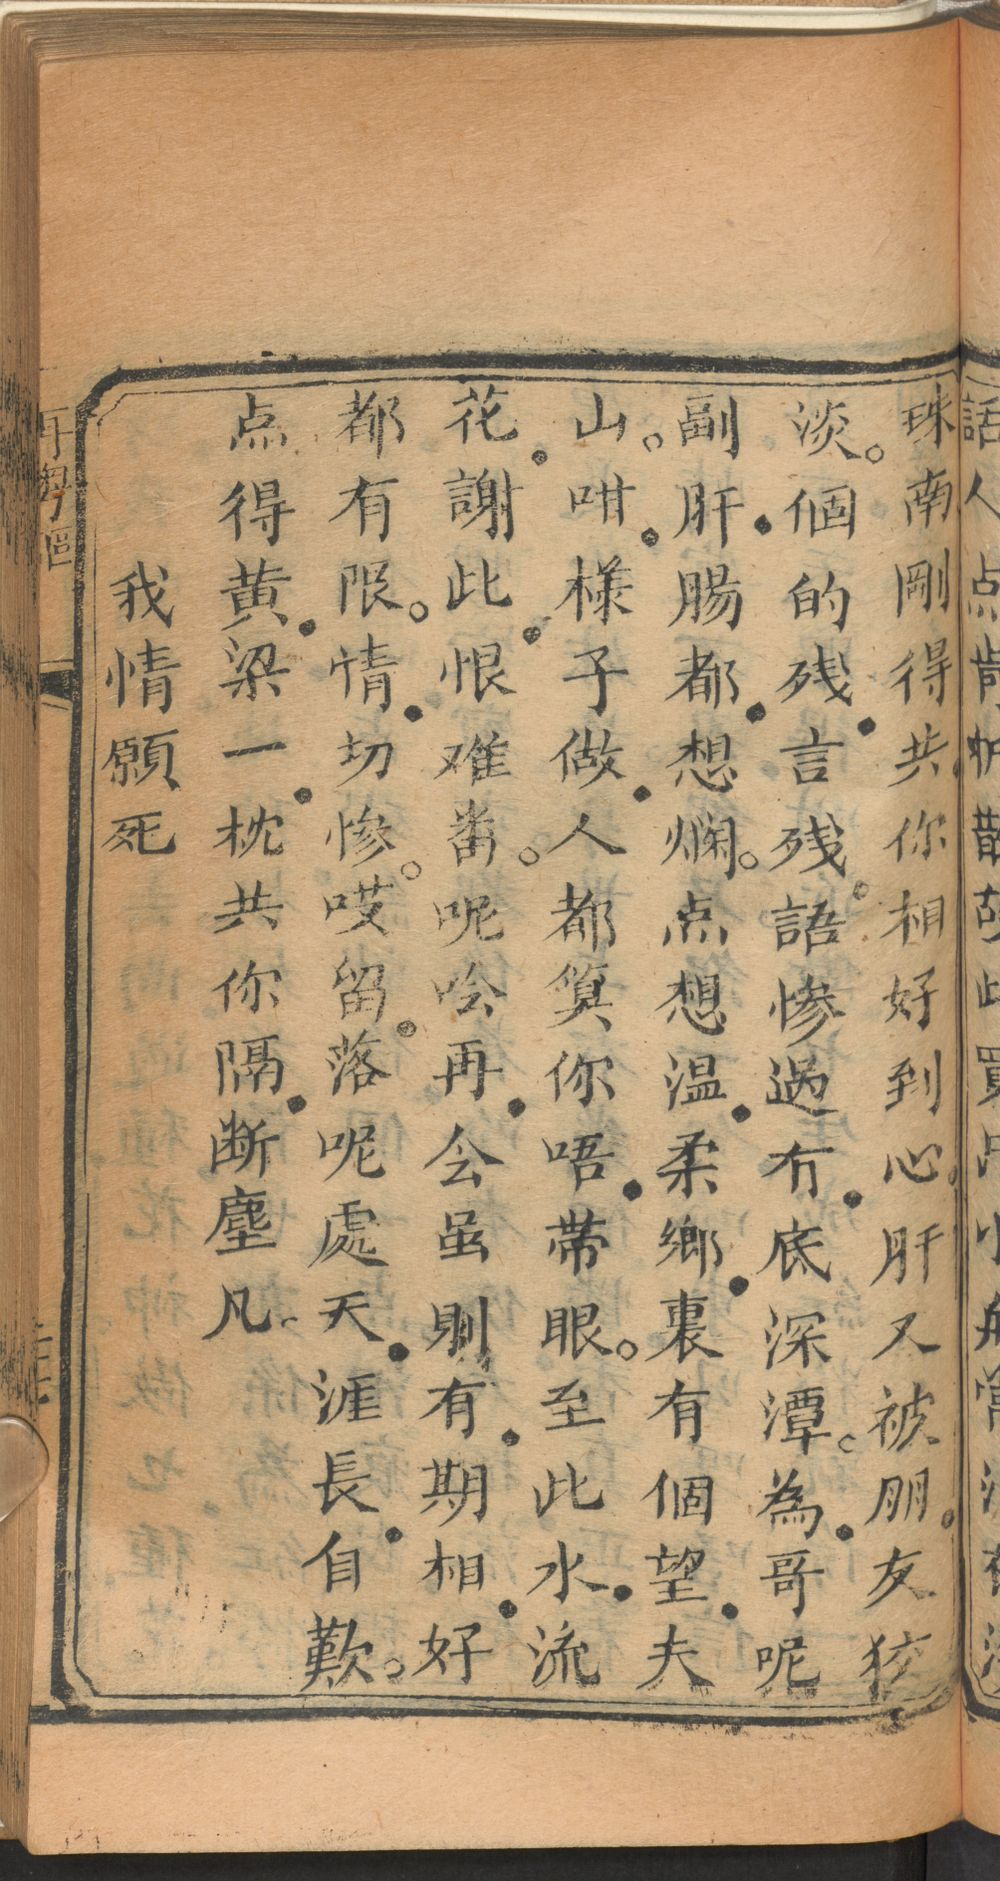 珠南剛得共你相好到心肝又被朋友狡
淡。個的残言残語慘過冇底深潭。為哥呢
副肝腸都想爛。点想温柔鄉裏有個望夫
山。咁樣子做人都算你唔帯眼。至此水流
花謝此恨难番。呢吟再会虽則有期相好
都有限。情切慘。哎留落呢處天涯長自歎。
点得黄梁一枕共你隔断塵凡。
我情願死